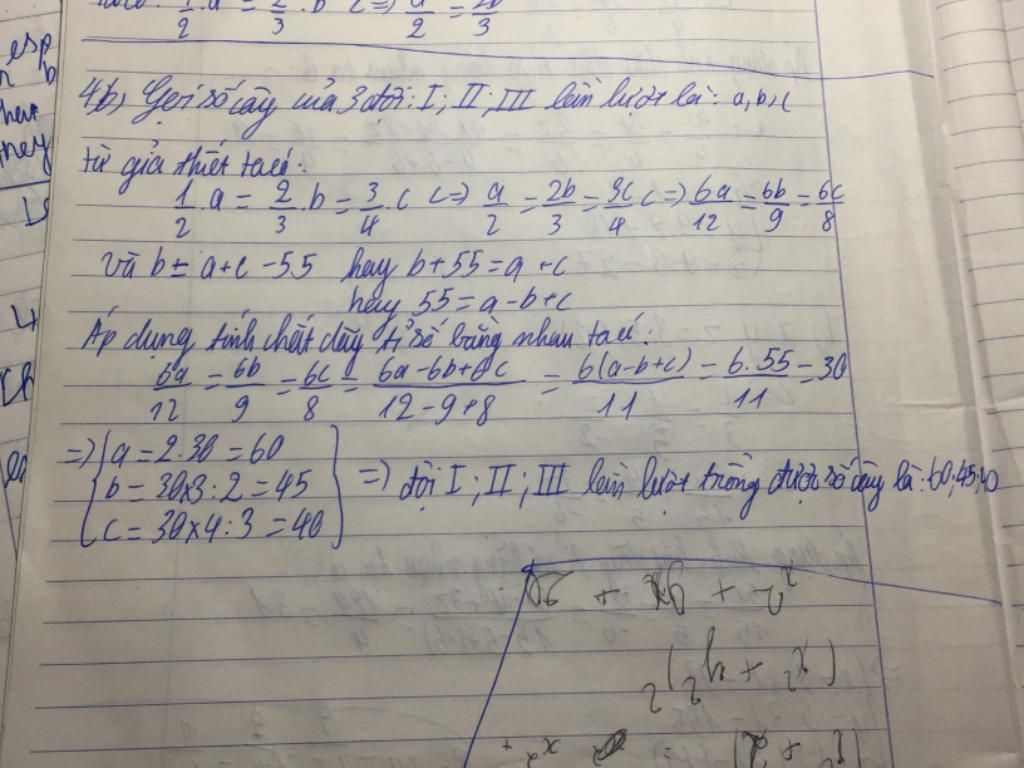 1/2 . a = 2/3 . b <=> a/2 = 2b/3
4b, Gọi số cây của 3 đội: I; II; III lần lượt là: a, b, c
từ giả thiết ta có:
1/2 . a = 2/3 . b = 3/4 . c <=> a/2 = 2b/3 = 3c/4 <=> 6a/12 = 6b/9 = 6c/8
và b = a + c - 55 hay b + 55 = a + c
hay 55 = a - b + c
Áp dụng tính chất dãy tỉ số bằng nhau ta có:
6a/12 = 6b/9 = 6c/8 = 6a - 6b + 6c/12 - 9 + 8 = 6(a - b + c)/11 = 6.55/11 = 30
=> { a = 2.30 = 60
b = 30x3 : 2 = 45
c = 30x4 : 3 = 40
=> đội I; II; III lần lượt trồng được số cây là: 60; 45; 40
(x² + y²)²